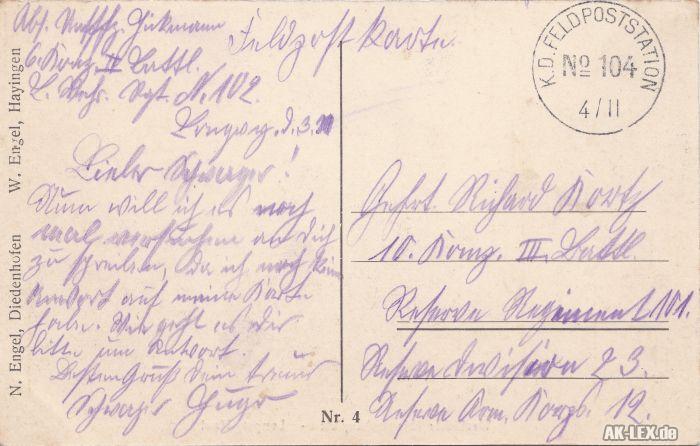 Abs. Hickmann
6. Komp. II Battl.
L. Rgt. N. 102.
Longwy, d. 3.
Feldpostkarte.
K.D. FELDPOSTSTATION
No 104
4/II
Lieber Schwager!
Nun will ich es noch
mal versuchen an Dich
zu schreiben, da ich noch keine
Antwort auf meine Karte
habe. Wie geht es Dir
bitte um Antwort.
Besten Gruß Dein treuer
Schwager Hugo
Gefrt. Richard
10. Komp. III. Battl.
Reserve Regiment 101.
Reserve Division 23.
Reserve Arm. Korps. 12.
N. Engel, Diedenhofen W. Engel, Hayingen
Nr. 4
AK-LEX.de